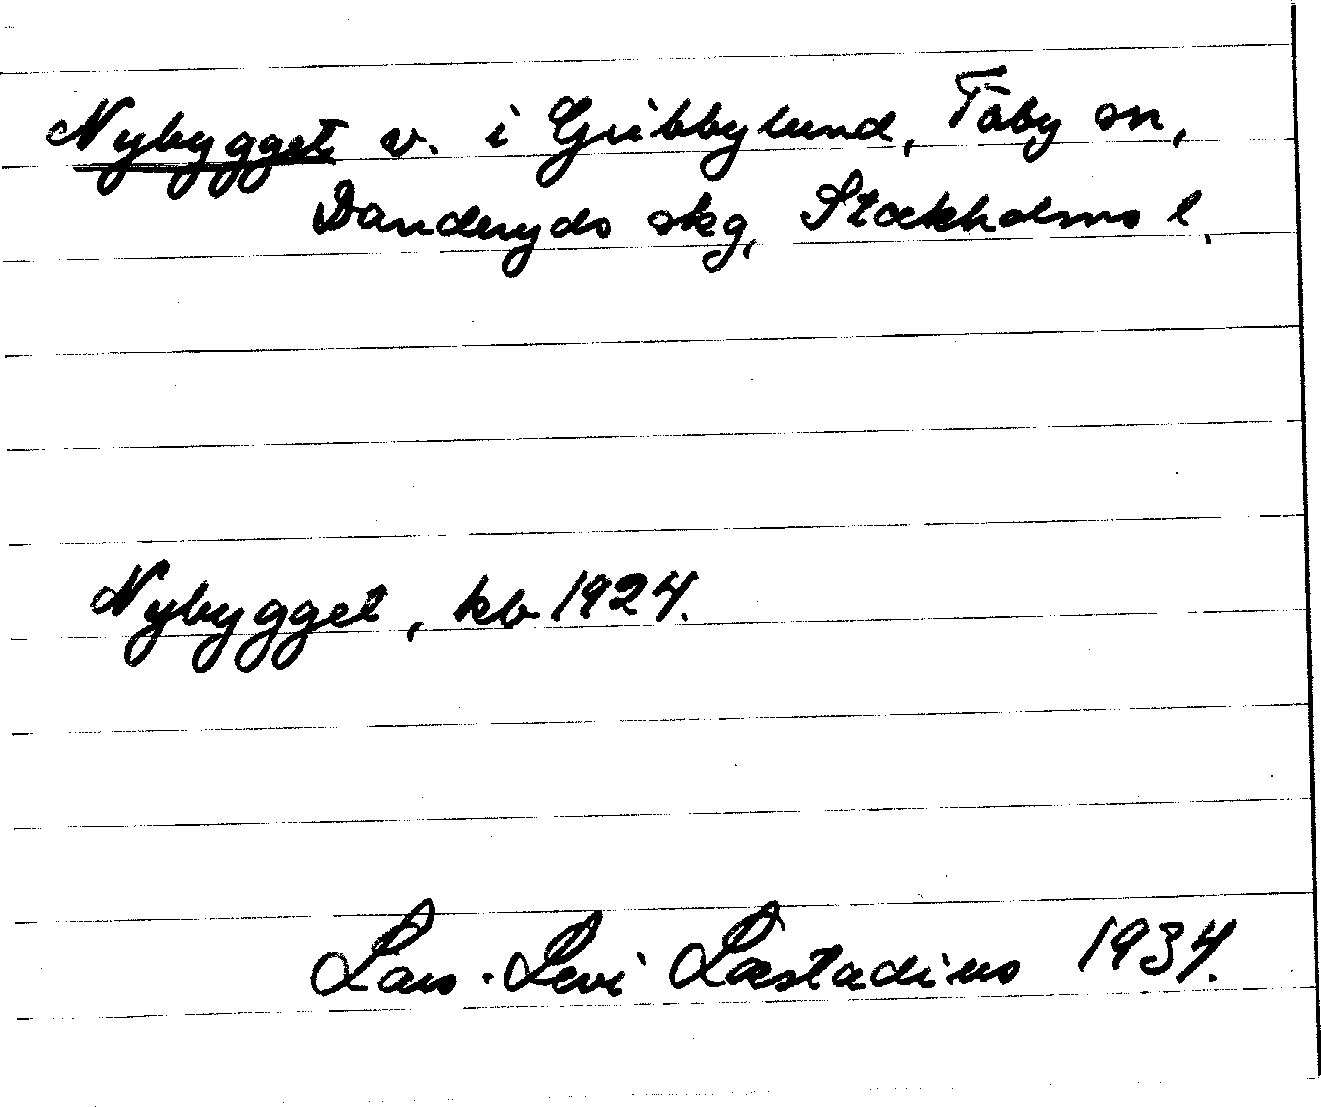 Nybygget v. i Gribbylund, Täby sn,
Danderyds skg, Stockholms l.
Nybygget, kb 1924.
Lars-Levi Læstadius 1934.